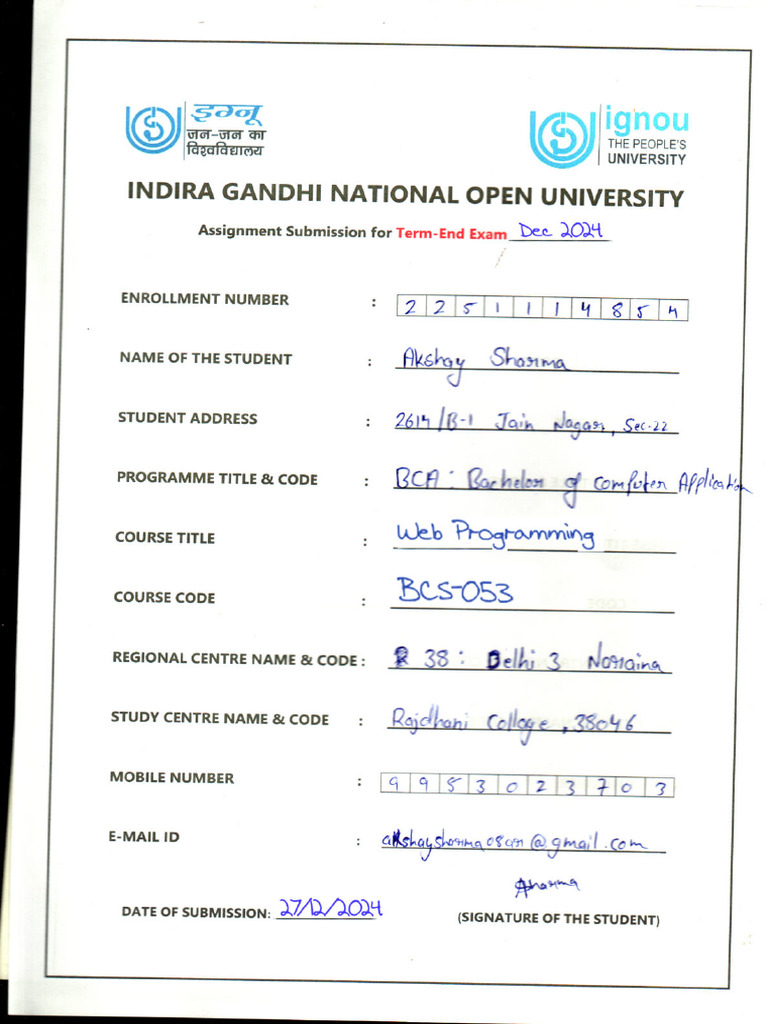 इग्नू
जन-जन का
विश्वविद्यालय
ignou
THE PEOPLE'S
UNIVERSITY
INDIRA GANDHI NATIONAL OPEN UNIVERSITY
Assignment Submission for Term-End Exam Dec 2024
ENROLLMENT NUMBER : 2251114854
NAME OF THE STUDENT : Akshay Sharma
STUDENT ADDRESS : 2614/B-1 Jain Nagar, Sec-22
PROGRAMME TITLE & CODE : BCA : Bachelor of Computer Application
COURSE TITLE : Web Programming
COURSE CODE : BCS-053
REGIONAL CENTRE NAME & CODE : 38 : Delhi 3 Noraina
STUDY CENTRE NAME & CODE : Rajdhani College, 38046
MOBILE NUMBER : 9953023703
E-MAIL ID : @gmail.com
DATE OF SUBMISSION: 27/12/2024
Sharma
(SIGNATURE OF THE STUDENT)